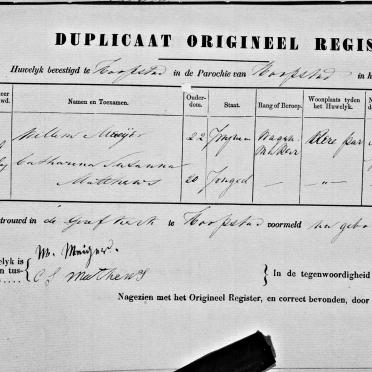 DUPLICAAT ORIGINEEL REGIS
Huwelyk bevestigd te Hoopstad in de Parochie van Hoopstad in h
eer
wd. Namen en Toenamen. Onder-
dom. Staat. Rang of Beroep. Woonplaats tyden
het Huwelyk.
Willem Meijer 22 Jongman Wagen
maker
Catharina Susanna
Matthews 20 Jonged — — " —
etrouwd in de Geref Kerk te Hoopstad voormeld na gebo
elyk is
n tus- W. Meijer.
C S Matthews In de tegenwoordigheid
Nagezien met het Origineel Register, en correct bevonden, door